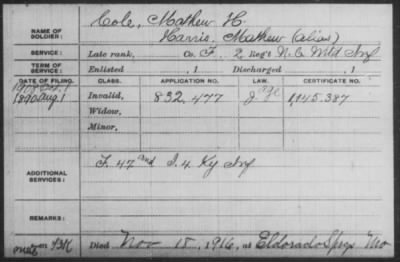 NAME OF SOLDIER: Cole, Mathew H.
Harris, Mathew (alias)
SERVICE: Late rank, Co. F, 2 Reg't N.C. Mtd Inf
TERM OF SERVICE: Enlisted , 1 Discharged , 1
DATE OF FILING. CLASS. APPLICATION NO. LAW. CERTIFICATE NO.
1890 Aug 1 Invalid, 832,477 1,145.387
Widow,
Minor,
ADDITIONAL SERVICES: F. 47 and I. 4. Ky Inf
REMARKS:
Died Nov 18, 1916, at Eldorado Spgs Mo